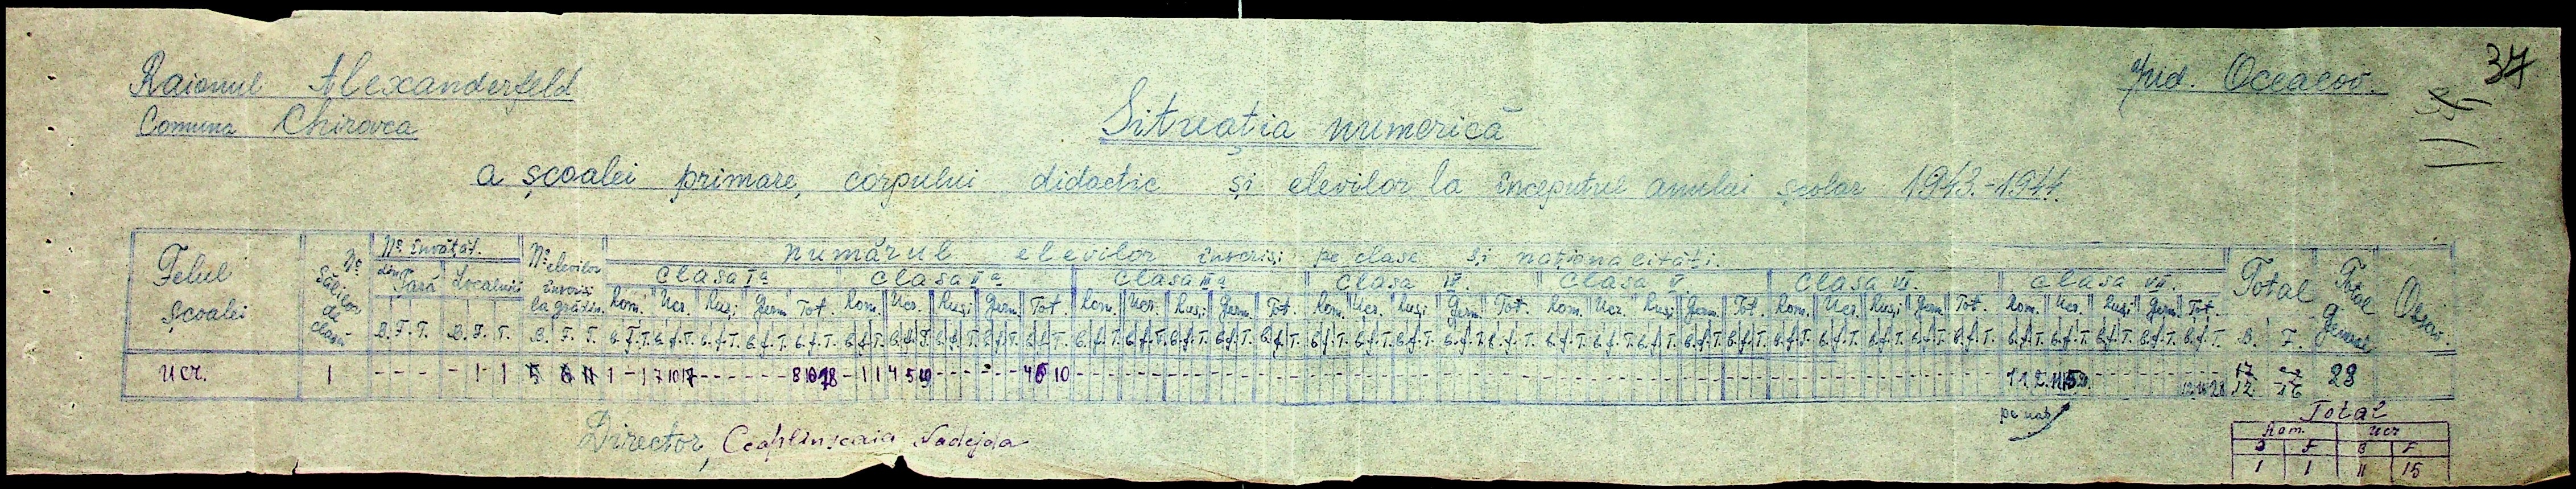 37
Raionul Alexanderfeld
Jud. Oceacov.
Comuna Chirovca
Situația numerică
a școalei primare, corpului didactic și elevilor la începutul anului școlar 1943.-1944.
Felul școalei
No sălilor de clasă
No învățăt.
din Țară Localnici
No elevilor înscriși la grădin.
Numărul elevilor înscriși pe clase și naționalități.
Clasa I a Clasa II a Clasa III a Clasa IV. Clasa V. Clasa VI. Clasa VII.
Total Total general Observ.
Rom. Ucr. Ruși Germ. Tot. Rom. Ucr. Ruși Germ. Tot. Rom. Ucr. Ruși Germ. Tot. Rom. Ucr. Ruși Germ. Tot. Rom. Ucr. Ruși Germ. Tot. Rom. Ucr. Ruși Germ. Tot. Rom. Ucr. Ruși Germ. Tot.
B. F. T. B. F. T. B. F. T. B. F.
Ucr. 1 - - - - 1 1 5 6 11 1 - 1 7 10 17 - - - - - - 8 10 18 - 1 1 4 5 9 - - - - - - 4 6 10 1 1 2. 11 15 12. 16 28 12. 16 28
pe nați
Total
Rom. Ucr
B F B F
1 1 11 15
Director, Ceaplinscaia Nadejda